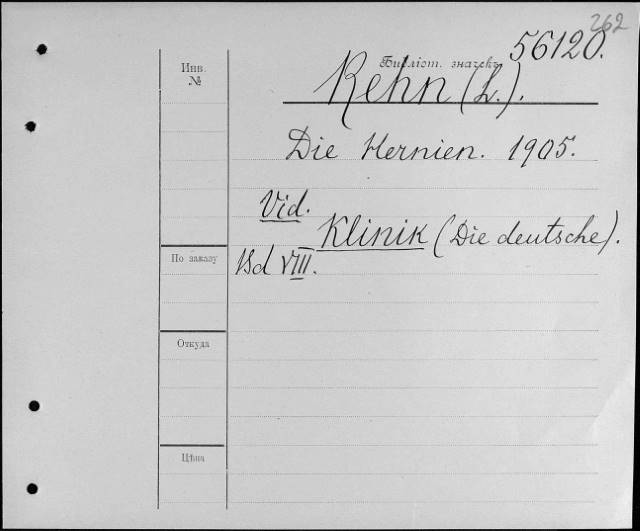 262
56120.
Инв.
№
Библіот. значекъ
Rehn (L.).
Die Hernien. 1905.
Vid.
Klinik (Die deutsche).
По заказу
Bd VIII.
Откуда
Цѣна